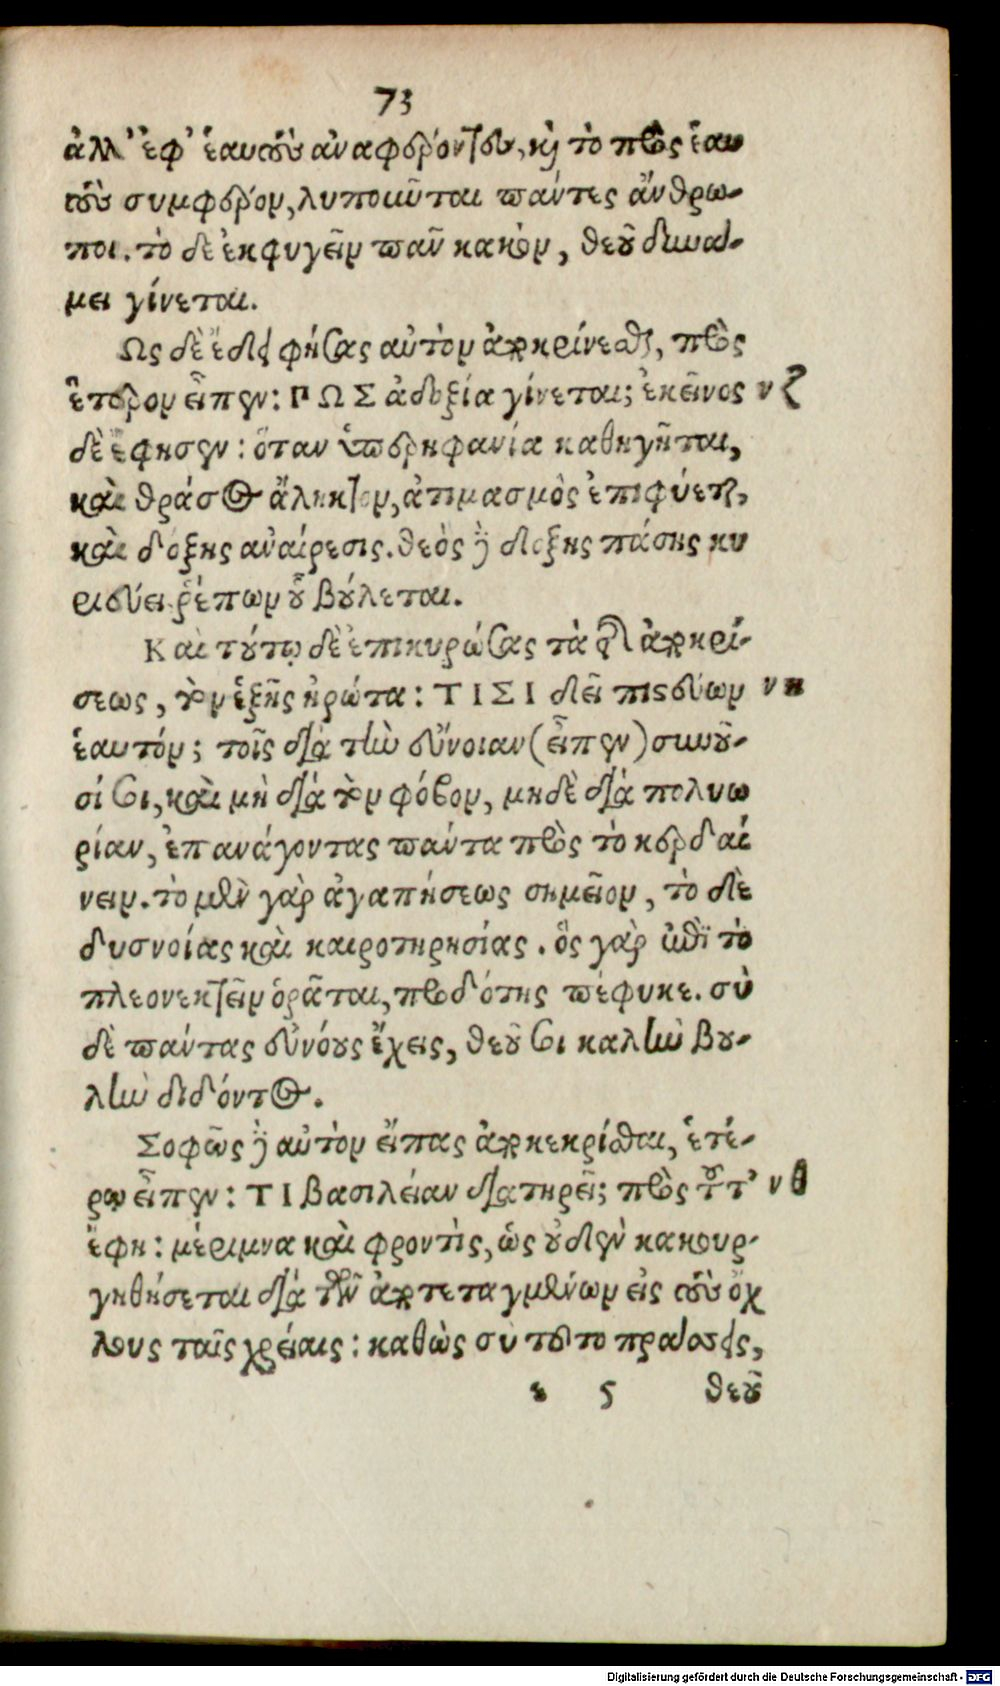 73
ἀλλ' ἐφ' ἑαυτοὺς ἀναφέροντες, καὶ τὸ πρὸς ἑαυ
τοὺς συμφέρον, λυποῦνται πάντες ἄνθρω-
ποι. τὸ δὲ ἐκφυγεῖν πᾶν κακὸν, θεοῦ δυνά-
μει γίνεται.
Ὡς δὲ ἔδει φήσας αὐτὸν ἀποκρίνεσθαι, πρὸς
ἕτερον εἶπεν: ΠΩΣ ἀδοξία γίνεται; ἐκεῖνος
νζ
δὲ ἔφησεν: ὅταν ὑπερηφανία καθηγῆται,
καὶ θράσος ἄληκτον, ἀτιμασμὸς ἐπιφύεται,
καὶ δόξης ἀναίρεσις. θεὸς δὲ δόξης πάσης κυ
ριεύει ῥέπων οὗ βούλεται.
Καὶ τούτῳ δὲ ἐπικυρώσας τὰ τῆς ἀποκρί-
σεως, τὸν ἑξῆς ἠρώτα: ΤΙΣΙ δεῖ πιστεύων
νη
ἑαυτόν; τοῖς διὰ τὴν εὔνοιαν (εἶπεν) συνοῦ-
σί σοι, καὶ μὴ διὰ τὸν φόβον, μηδὲ διὰ πολυω
ρίαν, ἐπανάγοντας πάντα πρὸς τὸ κερδαί
νειν. τὸ μὲν γὰρ ἀγαπήσεως σημεῖον, τὸ δὲ
δυσνοίας καὶ καιροτηρησίας. ὃς γὰρ ἐπὶ τὸ
πλεονεκτεῖν ὁρᾶται, προδότης πέφυκε. σὺ
δὲ πάντας εὐνόους ἔχεις, θεοῦ σοι καλὴν βου-
λὴν διδόντος.
Σοφῶς δὲ αὐτὸν εἴπας ἀποκεκρίσθαι, ἑτέ-
ρῳ εἶπεν: ΤΙ βασιλείαν διατηρεῖ; πρὸς τοῦτ'
νθ
ἔφη: μέριμνα καὶ φροντὶς, ὡς οὐδὲν κακουρ-
γηθήσεται διὰ τῶν ἀποτεταγμένων εἰς τοὺς ὄχ
λους ταῖς χρείαις: καθὼς σὺ τοῦτο πράσσεις,
ε 5 θεοῦ
Digitalisierung gefördert durch die Deutsche Forschungsgemeinschaft - DFG